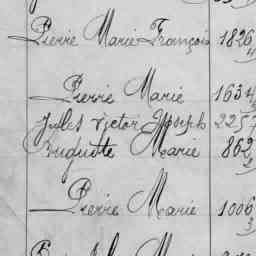 Pierre Marie François 1826
Pierre Marie 1634
Jules Victor Joseph 2257
Auguste Marie 862
Pierre Marie 1006